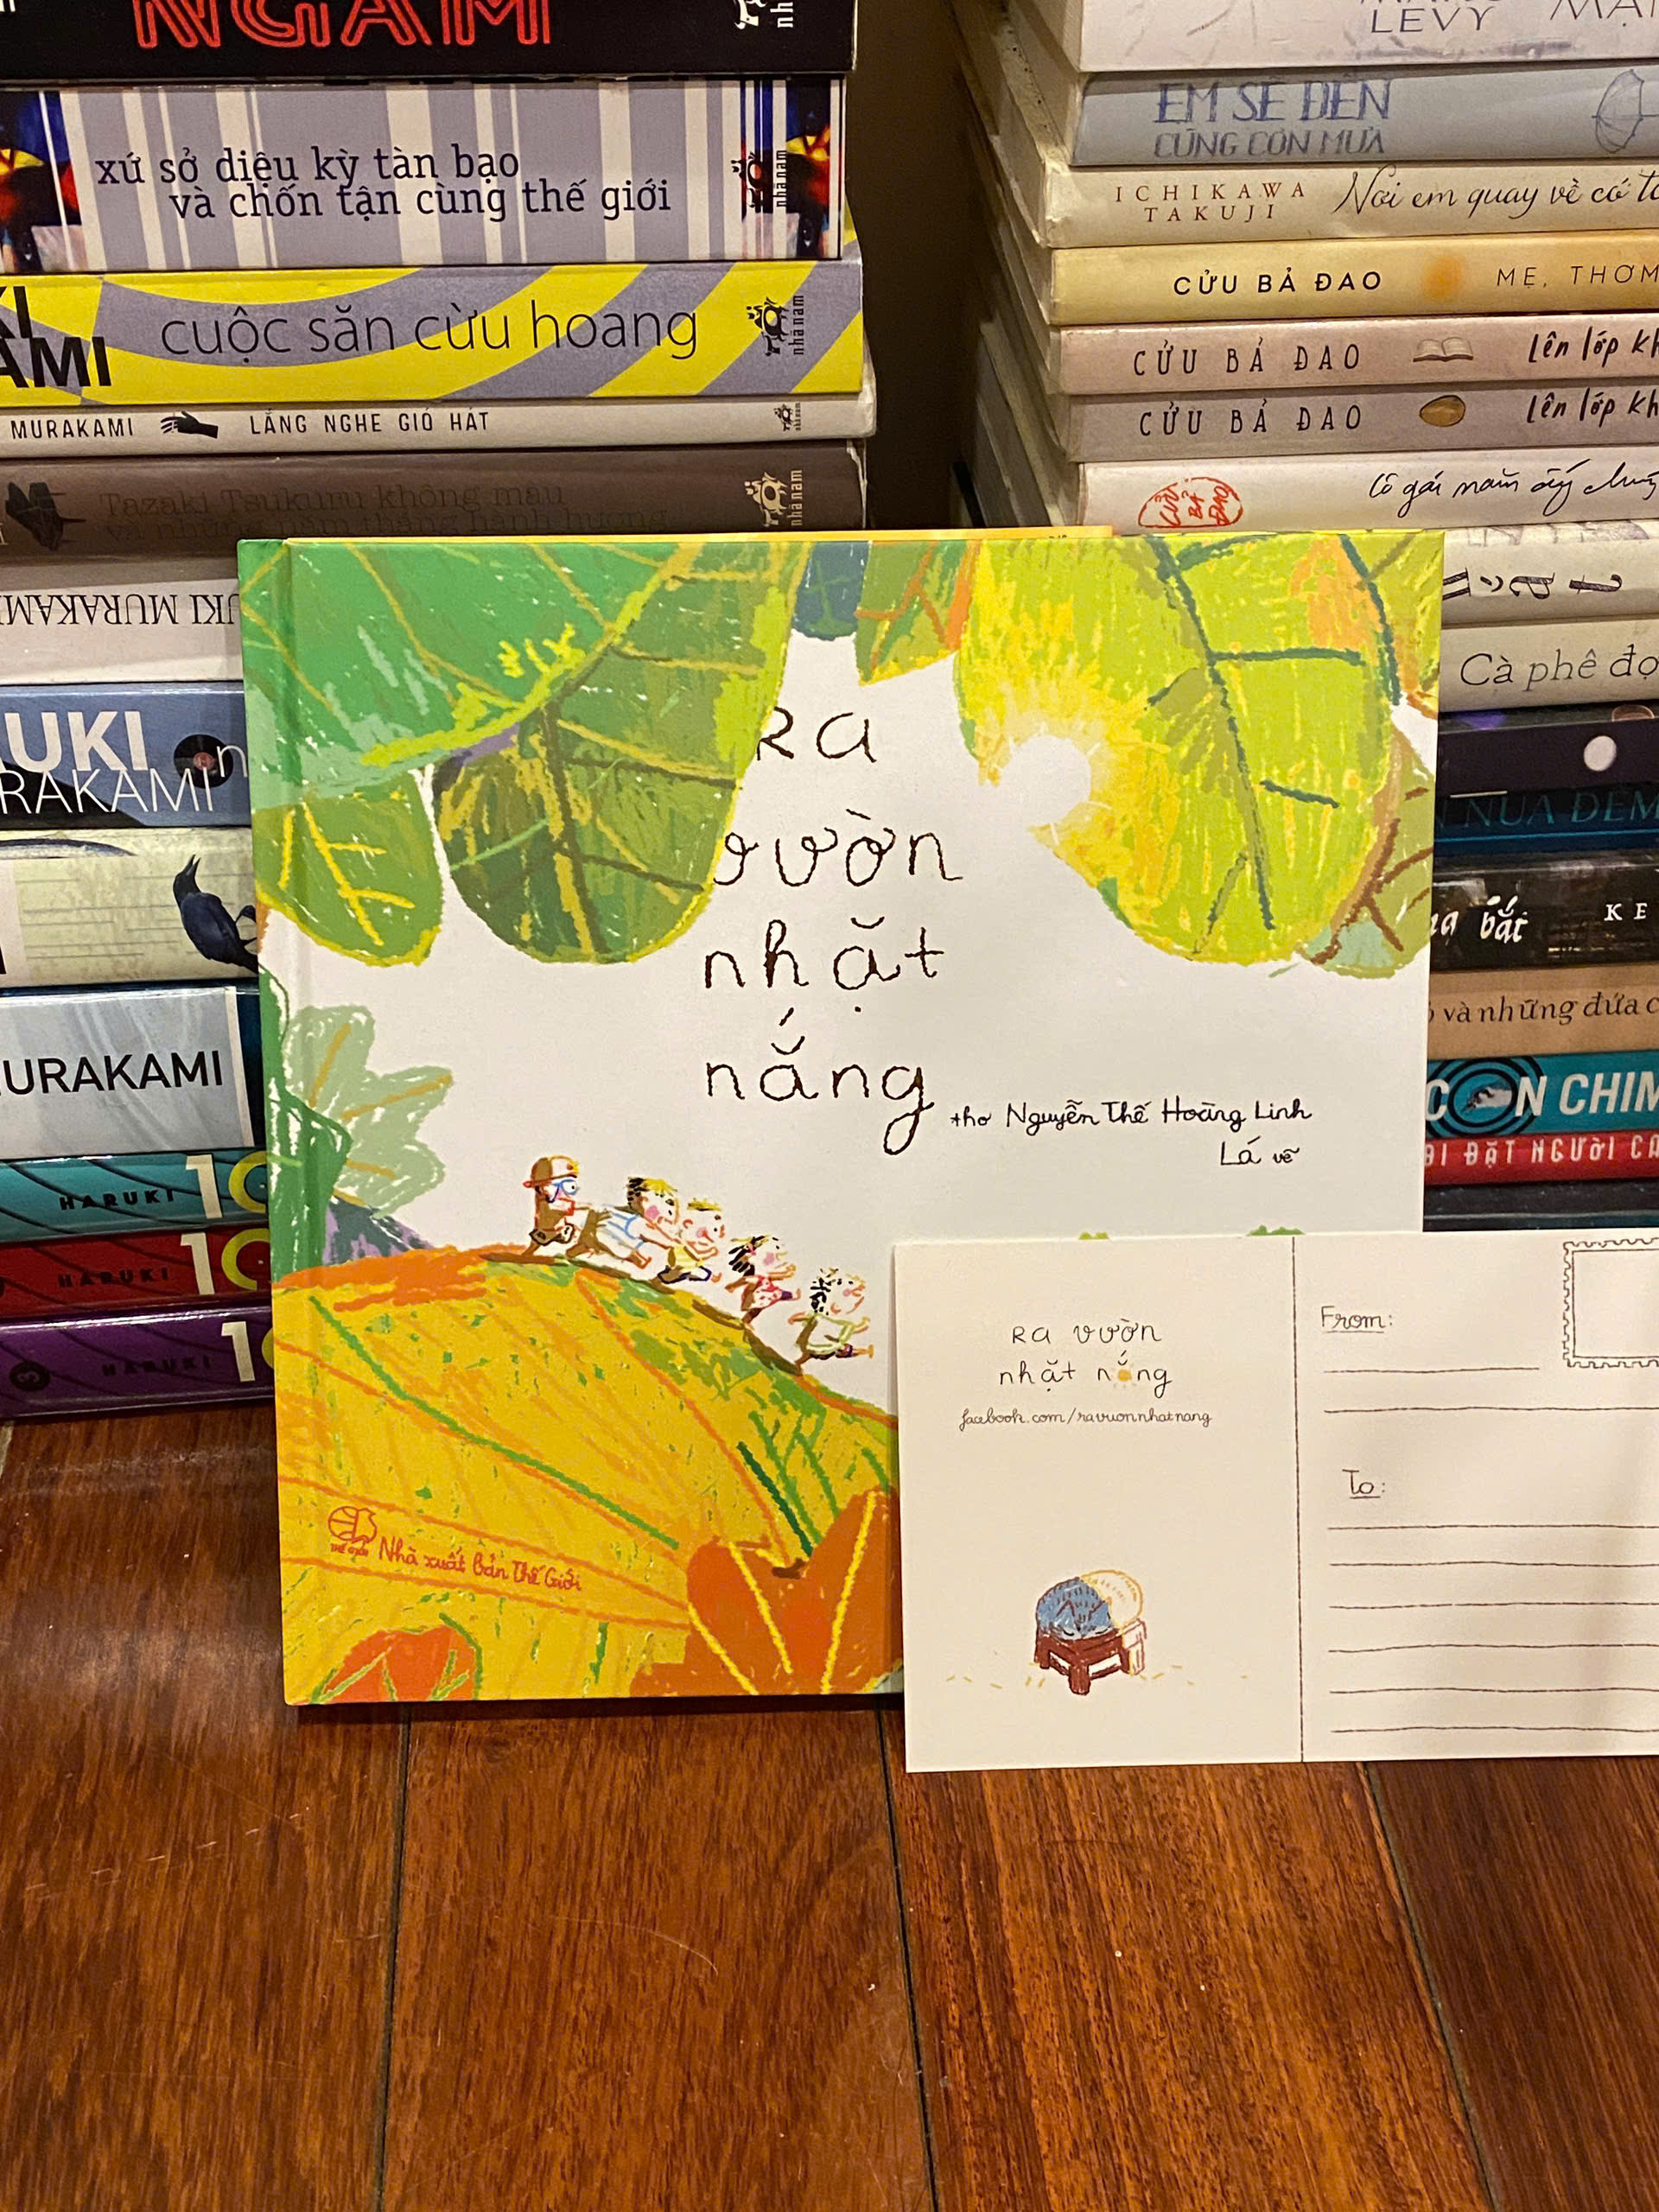 NGẦM
nhã nam
xứ sở diệu kỳ tàn bạo
và chốn tận cùng thế giới
nhã nam
cuộc săn cừu hoang
nhã nam
MURAKAMI LẮNG NGHE GIÓ HÁT
nhã nam
Tazaki Tsukuru không màu
và những năm tháng hành hương
nhã nam
MURAKAMI
MURAKAMI
HARUKI
HARUKI
3 HARUKI
LEVY
EM SẼ ĐẾN
CÙNG CƠN MƯA
ICHIKAWA
TAKUJI
Nơi em quay về có
CỬU BẢ ĐAO MẸ, THƠM
CỬU BẢ ĐAO Lên lớp
CỬU BẢ ĐAO Lên lớp
CỬU BẢ ĐAO
Cô gái năm ấy
Cà phê
NỬA ĐÊM
bắt
và những đứa
CON CHIM
ĐẶT NGƯỜI
Ra
vườn
nhặt
nắng
thơ Nguyễn Thế Hoàng Linh
Lá vẽ
THẾ GIỚI
Nhà xuất bản Thế Giới
Ra vườn
nhặt nắng
facebook.com/ravuonnhatnang
From:
To: